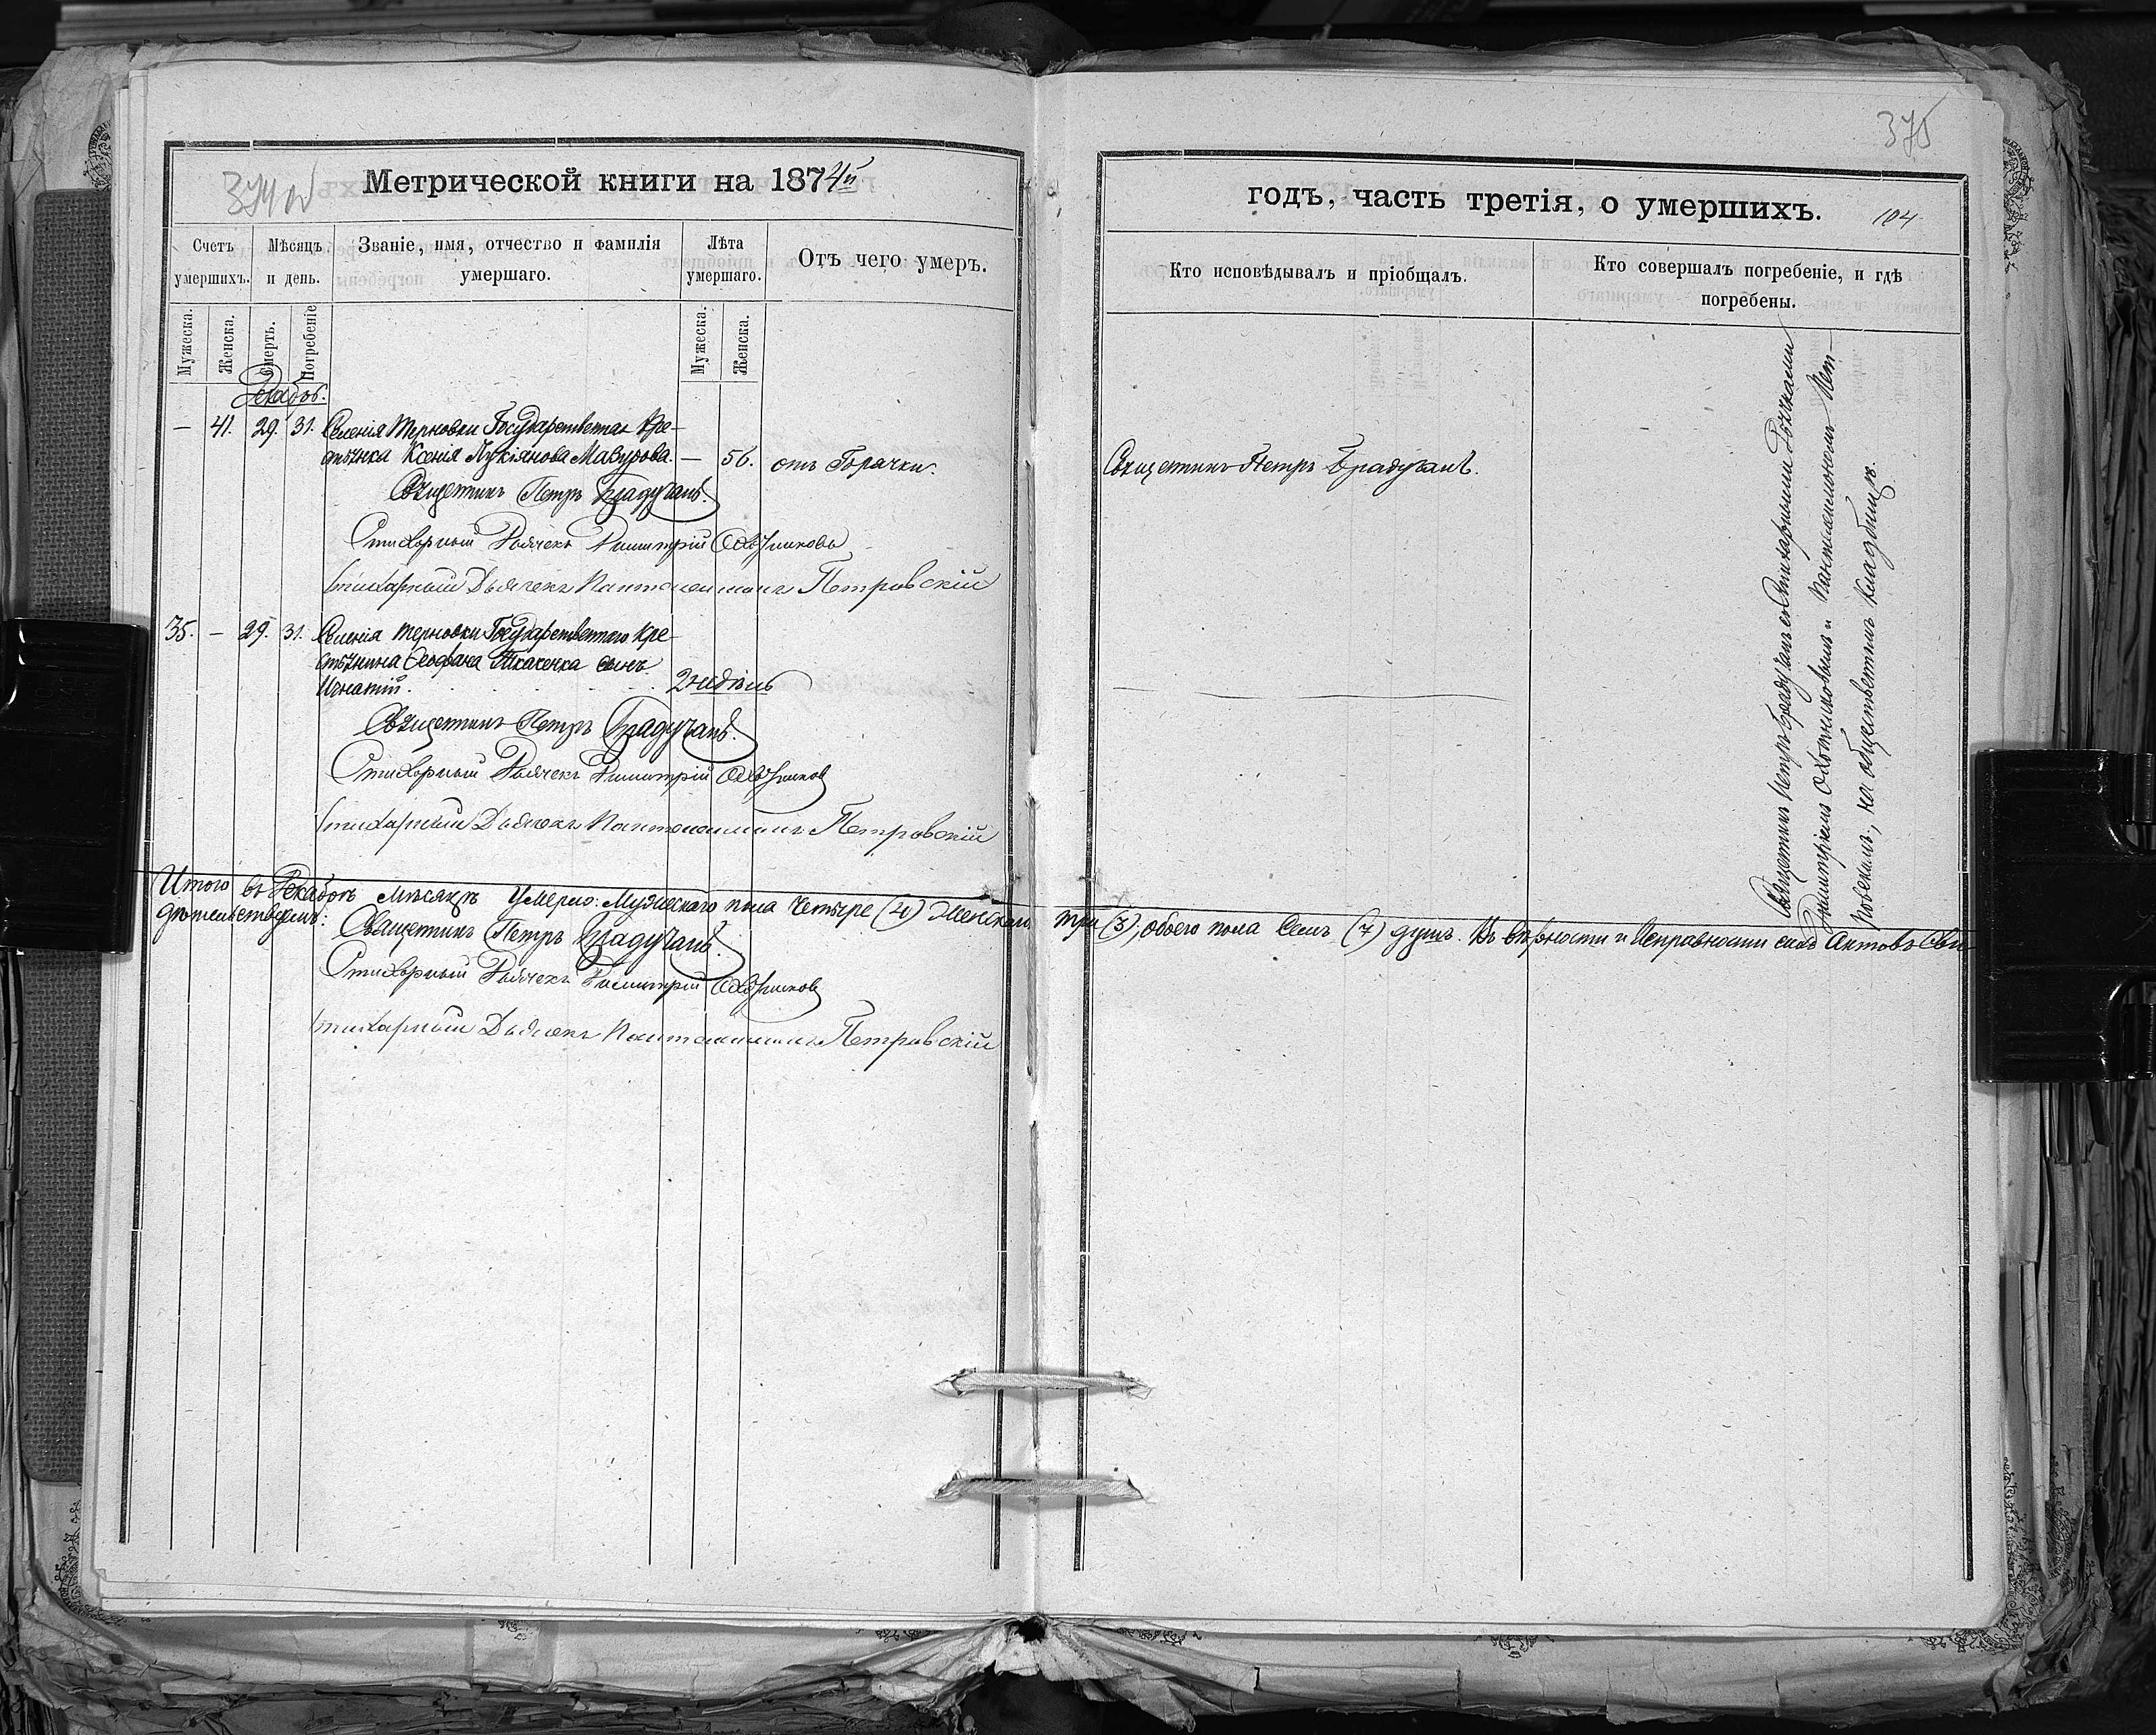 375
Метрической книги на 1874й
374 об
годъ, часть третія, о умершихъ.
104
Счетъ умершихъ.
Мѣсяцъ и день.
Званіе, имя, отчество и фамилія умершаго.
Лѣта умершаго.
Отъ чего умеръ.
Кто исповѣдывалъ и пріобщалъ.
Кто совершалъ погребеніе, и гдѣ погребены.
Мужеска.
Женска.
Смерть.
Погребеніе
Мужеска.
Женска.
Декабрь.
— 41. 29. 31. Селенія Терновки Государственная Кре-
стьянка Ксенія Лукіянова Мазурова. — 56. отъ Горячки. Священникъ Петръ Брадучанъ.
Священникъ Петръ Брадучанъ.
Стихарный Дьячекъ Димитрій Охотниковъ
Стихарный Дьячекъ Пантелеимонъ Петровскій
35. — 29. 31. Селенія Терновки Государственнаго Кре-
стьянина Ѳеофана Ткаченка сынъ
Игнатій. 2 недѣль
Священникъ Петръ Брадучанъ.
Стихарный Дьячекъ Димитрій Охотников
Стихарный Дьячекъ Пантелеимонъ Петровскій
Священникъ Петръ Брадучанъ съ Стихарными Дьячками
Димитріемъ Охотниковымъ и Пантелеимономъ Пет-
ровскимъ, на общественномъ кладбищѣ.
Итого въ Декабрѣ мѣсяцѣ умерло: Мужескаго пола четыре (4) Женскаго три (3), обоего пола семь (7) душъ. Въ вѣрности и исправности сихъ актовъ сви-
дѣтельствуемъ:
Священникъ Петръ Брадучанъ.
Стихарный Дьячекъ Димитрій Охотников
Стихарный Дьячекъ Пантелеимонъ Петровскій